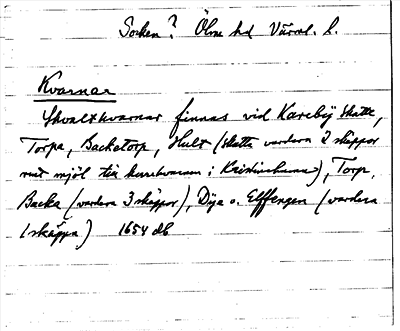 Socken? Ölme hd Värml. l.
Kvarnar
Skvaltkvarnar finnas vid Kareby skatte,
Torpa, Backetorp, Hult (skatta vardera 2 skäppor
mjöl till kvarnen i Kristinehamn), Torp,
Backa (vardera 3 skäppor), Dije o. Elffengen (vardera
1 skäppa) 1654 db